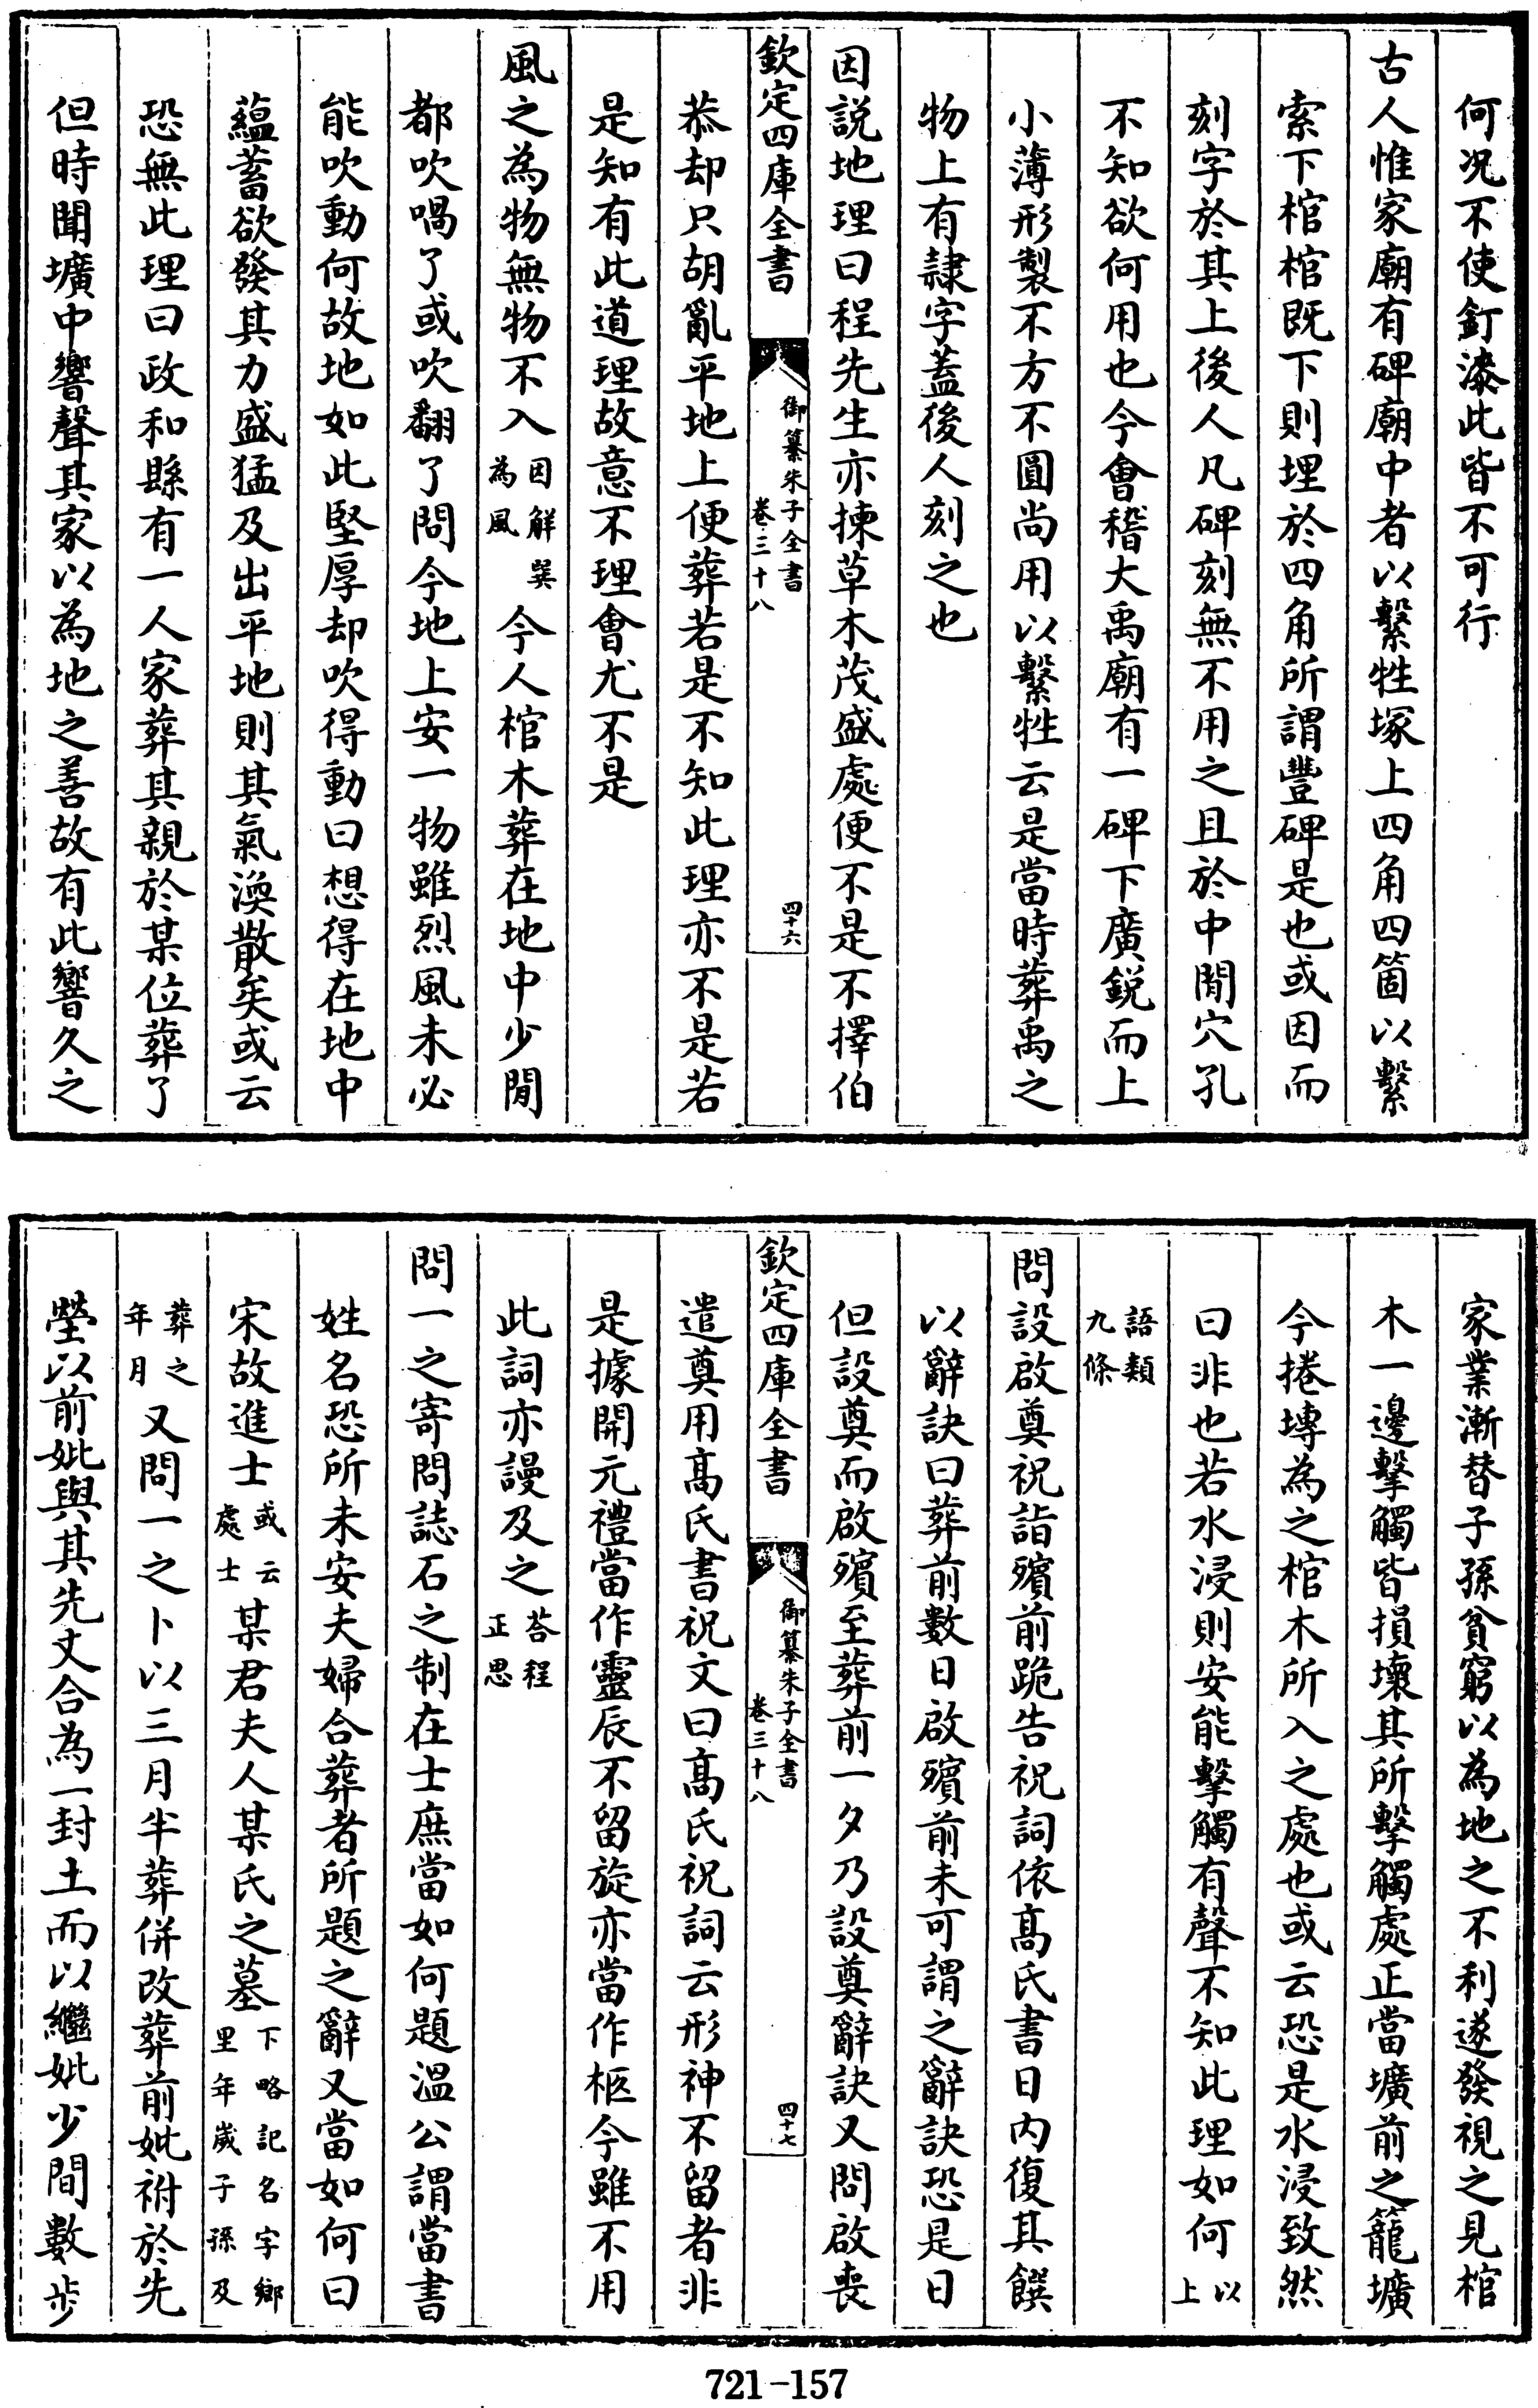 何况不使釘漆此皆不可行
古人惟家廟有碑廟中者以繫牲塚上四角四箇以繫
索下棺棺既下則埋於四角所謂豐碑是也或因而
刻字於其上後人凡碑刻無不用之且於中間穴孔
不知欲何用也今會稽大禹廟有一碑下廣銳而上
小薄形製不方不圓尚用以繫牲云是當時葬禹之
物上有隷字蓋後人刻之也
因説地理曰程先生亦揀草木茂盛處便不是不擇伯
欽定四庫全書
御纂朱子全書
卷三十八
四十六
恭却只胡亂平地上便葬若是不知此理亦不是若
是知有此道理故意不理會尤不是
風之為物無物不入因解巽為風今人棺木葬在地中少間
都吹喎了或吹翻了問今地上安一物雖烈風未必
能吹動何故地如此堅厚却吹得動曰想得在地中
蘊蓄欲發其力盛猛及出平地則其氣渙散矣或云
恐無此理曰政和縣有一人家葬其親於某位葬了
但時聞壙中響聲其家以為地之善故有此響久之
家業漸替子孫貧窮以為地之不利遂發視之見棺
木一邊擊觸皆損壞其所擊觸處正當壙前之籠壙
今捲塼為之棺木所入之處也或云恐是水浸致然
曰非也若水浸則安能擊觸有聲不知此理如何以上
語類九條
問設啟奠祝詣殯前跪告祝詞依髙氏書日内復其饌
以辭訣曰葬前數日啟殯前未可謂之辭訣恐是日
但設奠而啟殯至葬前一夕乃設奠辭訣又問啟喪
欽定四庫全書
御纂朱子全書
卷三十八
四十七
遣奠用髙氏書祝文曰髙氏祝詞云形神不留者非
是據開元禮當作靈辰不留旋亦當作柩今雖不用
此詞亦謾及之荅程正思
問一之寄問誌石之制在士庶當如何題温公謂當書
姓名恐所未安夫婦合葬者所題之辭又當如何曰
宋故進士或云處士某君夫人某氏之墓下略記名字鄉里年歲子孫及
葬之年月又問一之卜以三月半葬併改葬前妣祔於先
塋以前妣與其先丈合為一封土而以繼妣少間數步
721-157